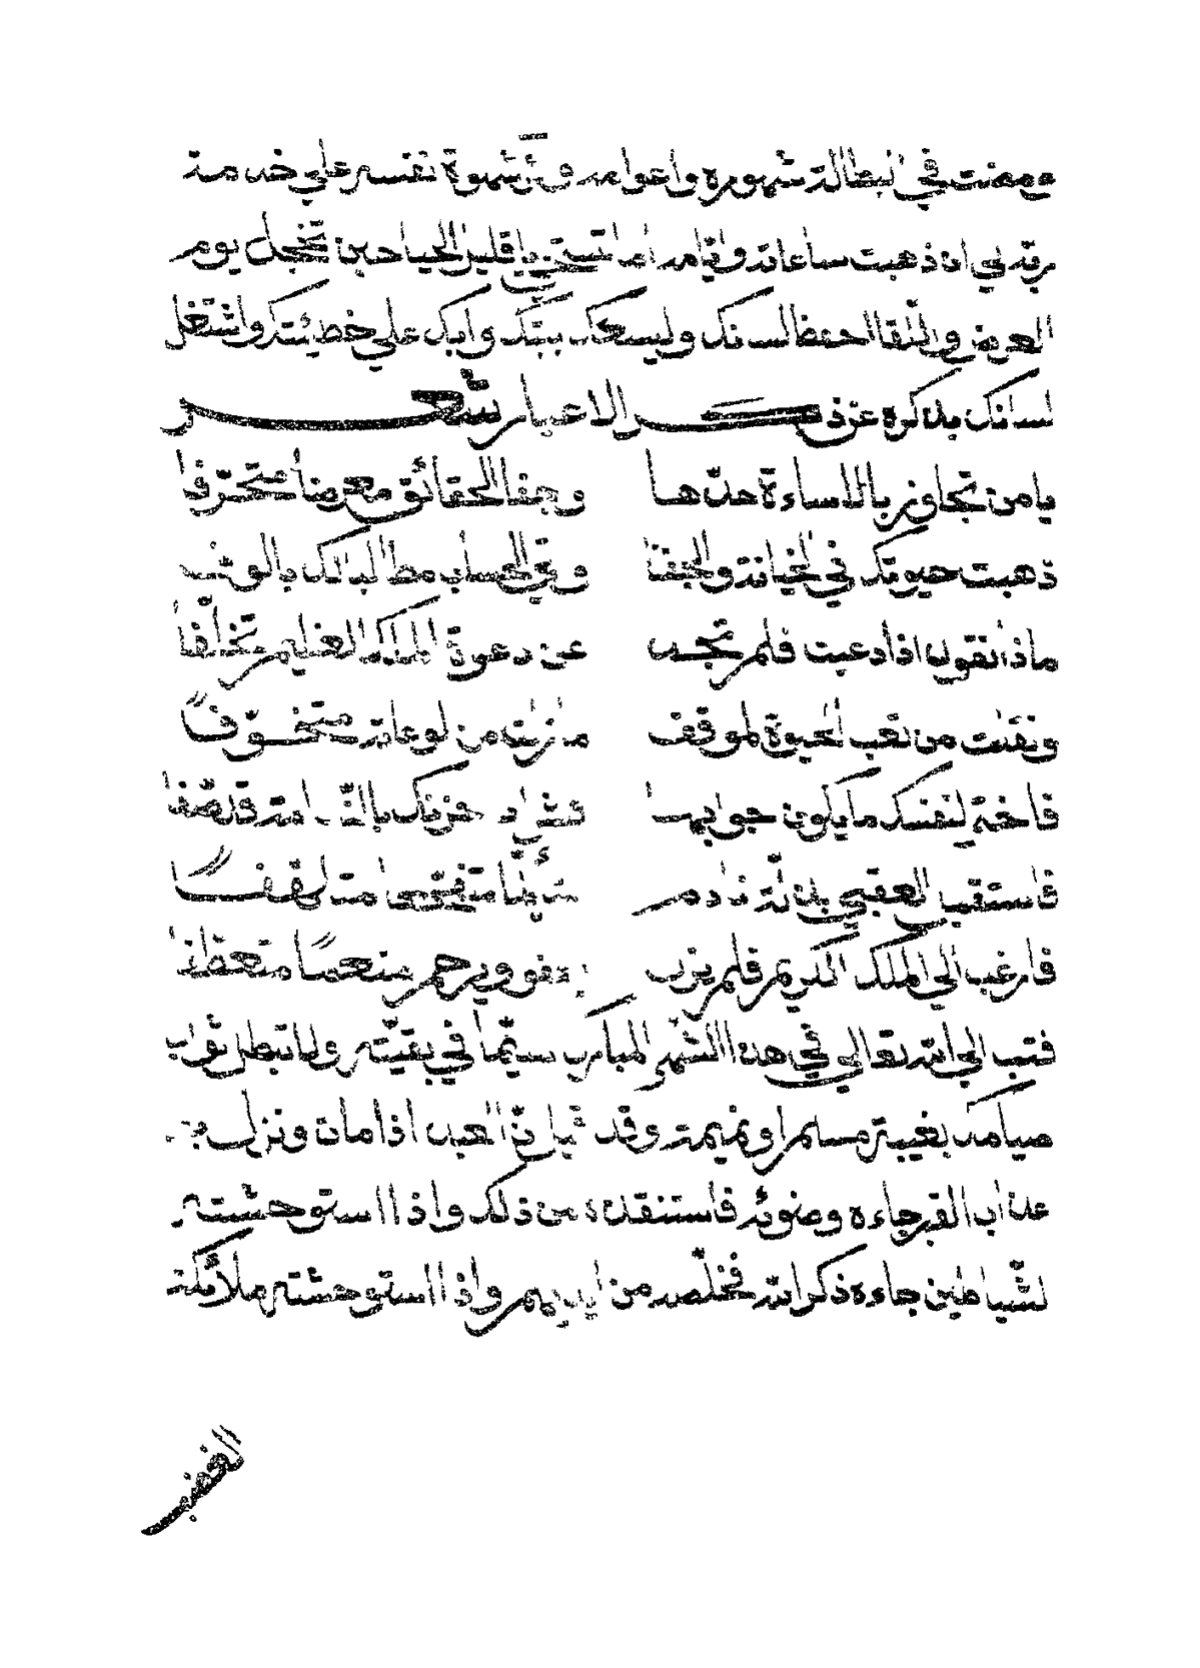 ومضت في البطالة شهوره واعوامه وآثر شهوة نفسه علي خدمة
ربه بي ان ذهبت ساعاته وايامه اما تستحي يا قليل الحيا حين تخجل يوم
العرض واللقا احفظ لسانك وليسعك بيتك وابك علي خطيئتك واشتغل
لسانك بذكره عن ذكر الاغيار شعر
يا من تجاوز بالاساءة حدها وجفا الحقائق معرضا متحرفا
ذهبت حيوتك في الخيانة والجفا وبقي الحساب مطالبا لك بالوفا
ماذا تقول اذا دعيت فلم تجد عن دعوة الملك العظيم تخلفا
ونقلت من تعب الحيوة لموقف ما زلت من لوعاته متخوفا
فاختر لنفسك ما يكون جوابها حزنك بالندامة قد صفا
فاستقبل العقبي بذلة نادم
فارغب الي الملك الكريم فلم يزل يعفو ويرحم منعما متعطفا
فتب الي الله تعالي في هذا الشهر المبارك سيما في بقيته ولا تبطل ثواب
صيامك بغيبة مسلم او نميمة وقد قيل ان العبد اذا مات ونزل به
عذاب القبر جاءه وضوئه فاستنقذه من ذلك واذا استوحشته
لشياطين جاءه ذكر الله فخلصه من ايديهم واذا استوحشته ملائكة
الغضب